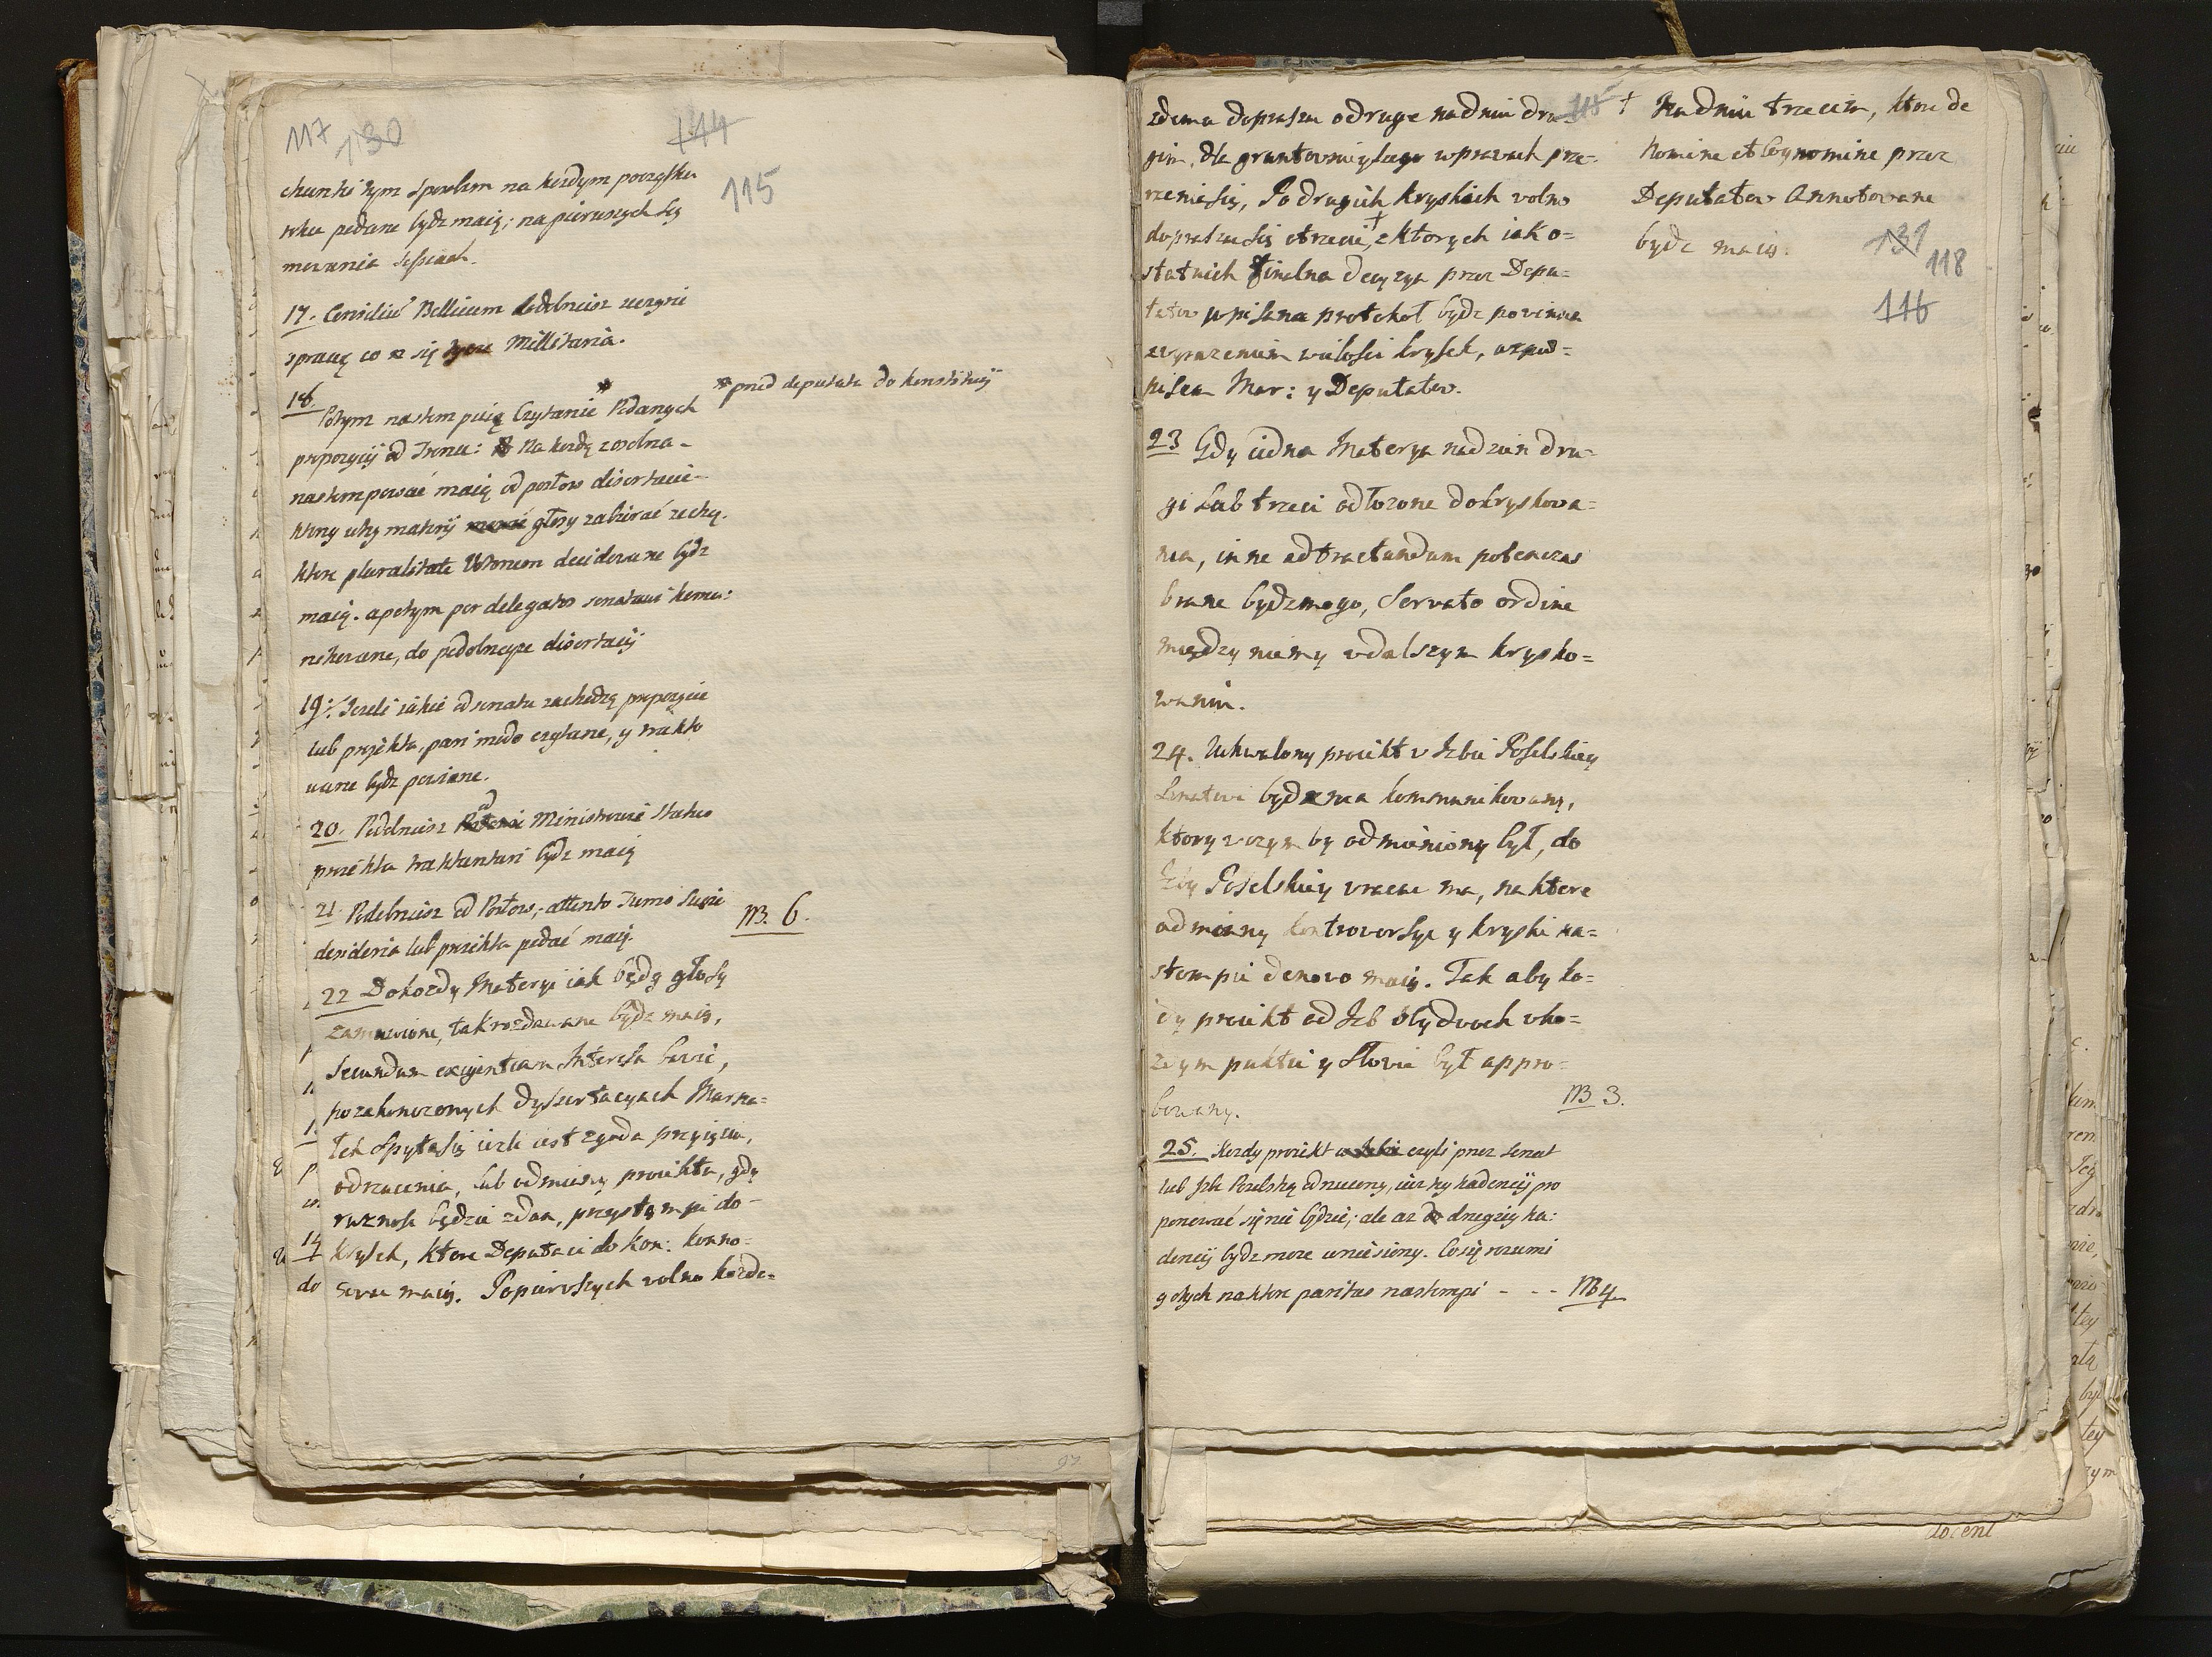 117 130 144
115
chunki tym sposobem na kozdym począsku
roku podane bydz maią; na pierwszych Sey
mowania Sessiach.
17. Consiliũ Bellicum podobniesz uczyni
sprawę co się tycze Millitaria.
18. Potym nastempuią Czytanie Podanych
* pred deputata do konstitucij
propozycij od Tronu: Na kozdę z osobna
nastempować maią od posłow disertacie
ktorzy w tey materij głosy zabirać zechcą.
ktore pluralitate Votorum decidowane bydz
maią. a potym per delegatos senatowi komu:
nikowane, do podobneyze disertacij
19. Jezeli iakie od senatu zachodzą propozycie
lub projekta, pari modo czytane, y trakto
wane bydz powinne.
20. Podobniesz od Ministrow Status
projekta traktowani bydz maią
21. Podobniesz od Posłow, attento Turno Swoie
desideria lub projekta podać maią.
NB. 6.
22 Do kozdy Materyi iak będą głosy
zamuwione, tak rozdawane bydz maią,
Secundum exigentiam Interessu bowie,
po zakonczonych dyssertacyach Marsza=
łek Spyta się iezli iest zgoda przyięcia,
odrzucenia, lub odmiany proiektu, gdy
roznosc będzie zdan, przystąmpi do
krysek, ktore Deputaci do Kon: konno=
towac maią. Po pierwszych wolno kozde=
14
do
115
zdemu doprasza o drugie na dniu dru
gim, dla gruntownieyszego w prawach prze=
rzenia się, Po drugich kryskach wolno
doprasza się o trzecie,† z ktorych iako o=
statnich finalna decyzya przez Depu=
tatow wpisana protokoł bydz powinna
z wyrazeniem wielosci krysek, oz pod=
pisem Mar: y Deputatow.
† Na dniu trzecim, ktore de
Nomine et Cognomine przez
Deputatow Annotowane
bydz maią.
131
118
116
23 Gdy iedna Materya na dzien dru=
gi lub trzeci odłozone do kryskowa=
nia, inne ad tractandum potenczas
brane bydz mogo, Servato ordine
między niemy w dalszym krysko=
waniu.
24. Uchwalony proiekt w Izbie Poselskiey
Senatowi bydz ma kommunikowany,
ktory w czym by odmieniony był, do
Izby Poselskiey vracac ma, na ktore
odmiany kontrowersye y kryski na=
stempic denovo maią. Tak aby ko=
zdy proiekt od Izb obydwoch v ka=
zdym puktie y słowie był appro=
bowany.
NB 3.
25. Kozdy proiekt czyli przez Senat
lub Izbę Poselską odrzucony, iuz tey kadencij pro
ponować się nie będzie; ale az drugiey ka:
dencij bydz moze wniesiony. Co się rozumi
y o tych na ktore paritas nastempi - - - NB 4